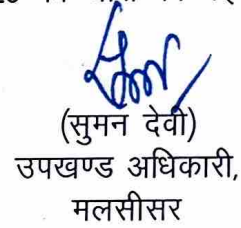 (सुमन देवी)
उपखण्ड अधिकारी,
मलसीसर